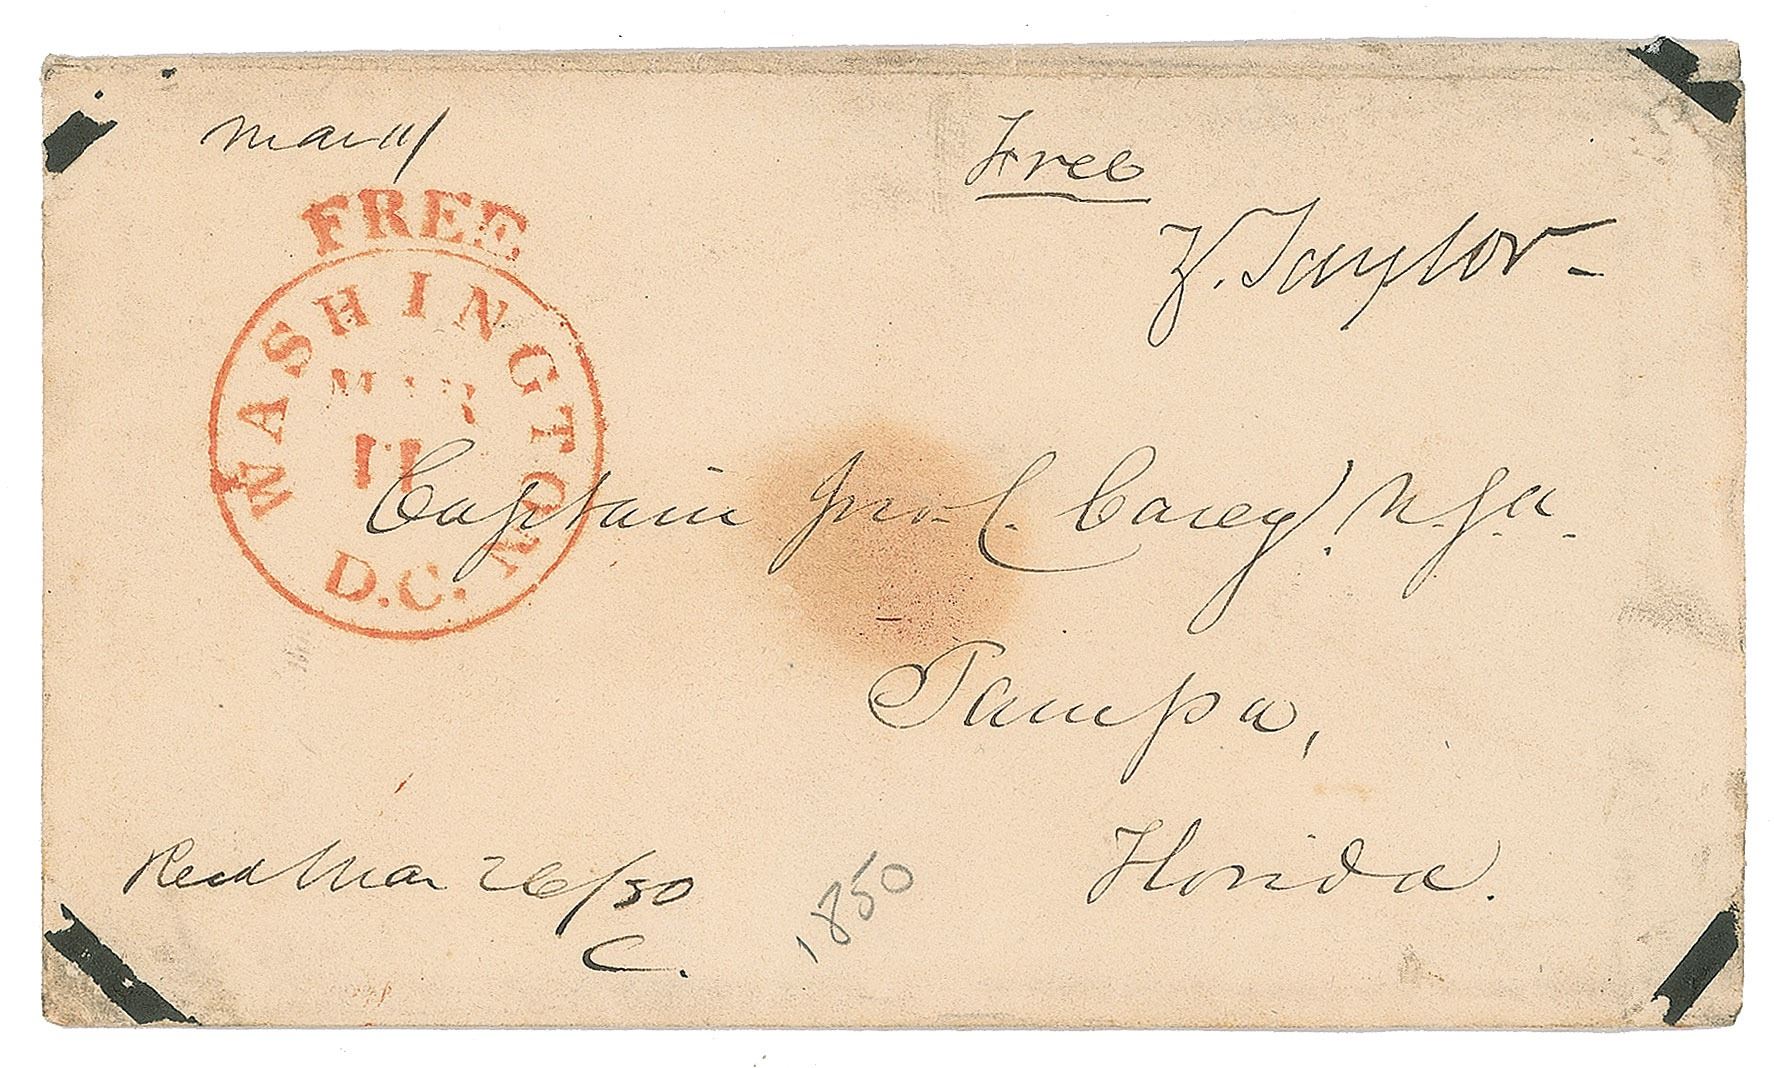 Mar 11/
Free
Z. Taylor -
FREE
WASHINGTON
D.C.
MAR
11
Captain Jno. C. Casey. U.S.A.
Tampa,
Florida.
Recd Mar 26/50
C.
1850